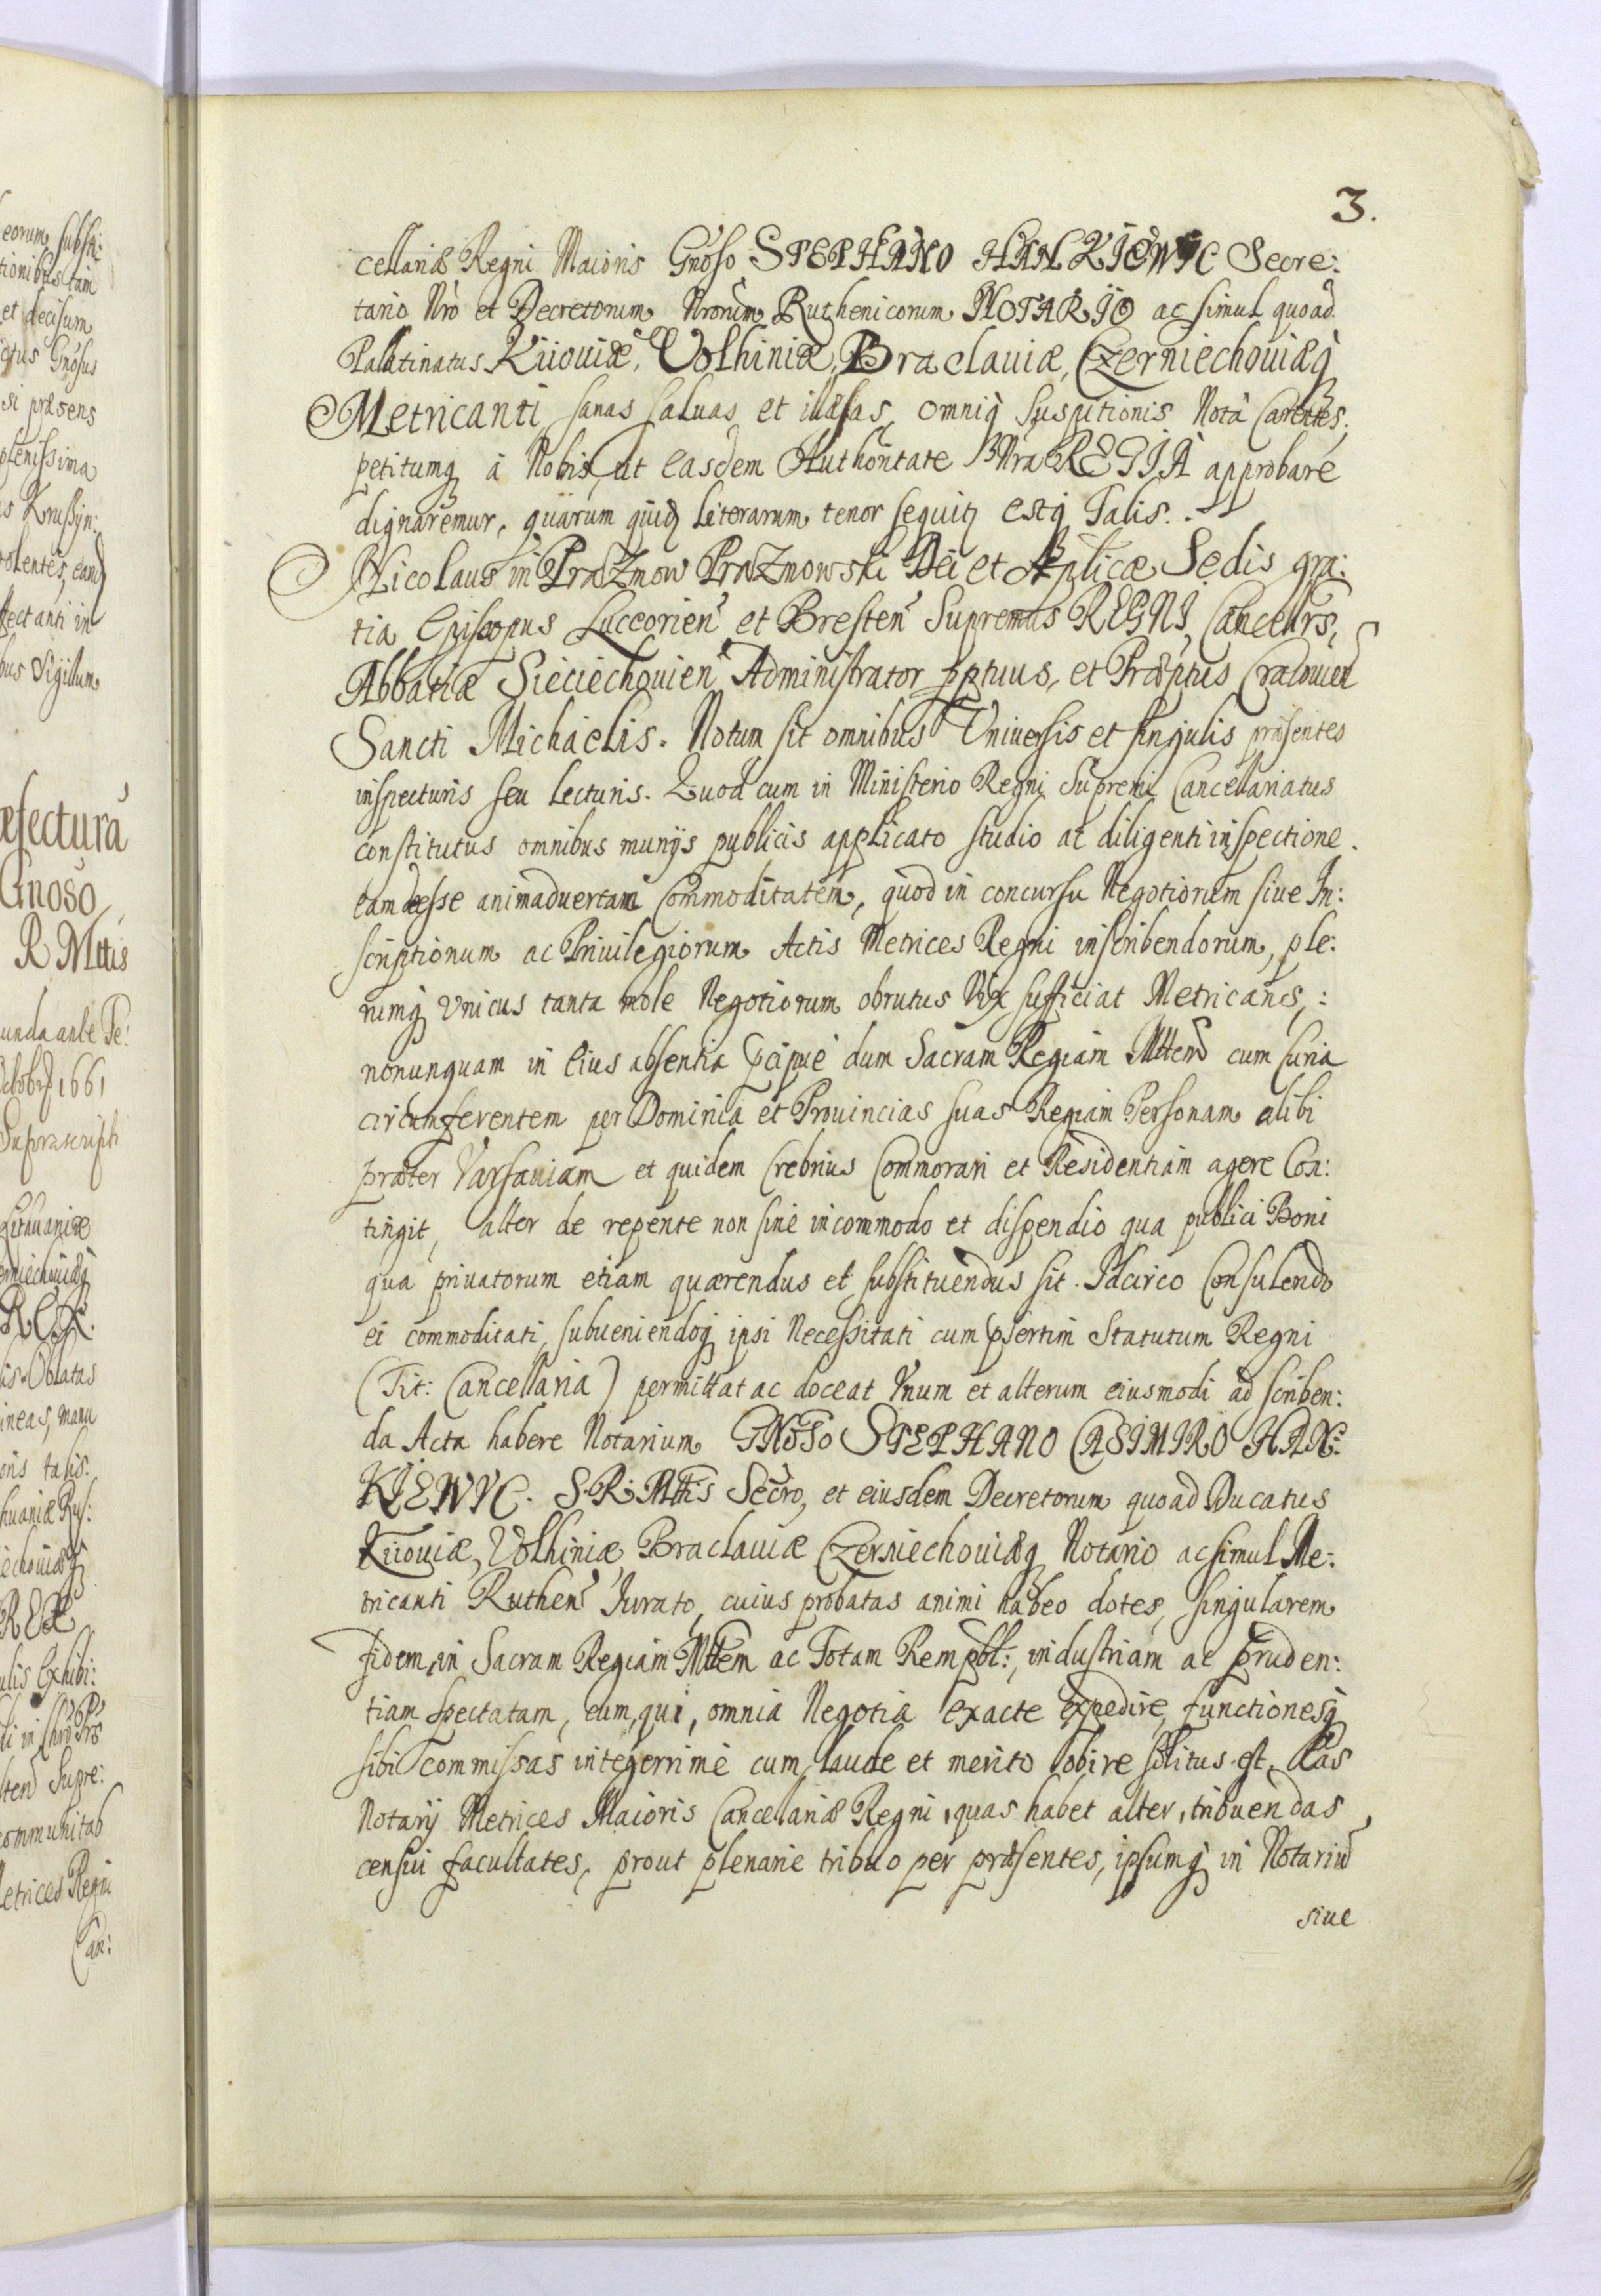 3.
cellariæ Regni Maioris Gnoso STEPHANO HANKIEWIC Secre:
tario Nro et Decretorum Nrorum Ruthenicorum NOTARIIO ac simul quoad
Palatinatus Kiiouiæ, Volhiniæ, Braclauiæ, Czerniechouiæq
Metricanti sanas saluas et illæsas, omniq suspitionis Notâ Carentes,
petitumq à Nobis, ut easdem Authoritate Nra REGIA approbare
dignaremur, quarum quidz Literarum tenor sequitz estq Talis.
Nicolaus in Prazmow Prazmowski Dei et Aplicæ Sedis gra:
tia Episcopus Luceorien et Bresten Supremus REGNI Cancellrs,
Abbatiæ Sieciechouien Administrator pptuus, et Præptus Cracouien
Sancti Michaelis. Notum sit omnibus Vniuersis et singulis præsentes
inspecturis seu Lecturis. Quod cum in Ministerio Regni Supremi Cancellariatus
constitutus omnibus munijs publicis applicato studio at diligenti inspectione.
eam deesse animaduertam Commoditatem, quod in concursu Negotiorum siue In:
scriptionum ac Priuilegiorum Actis Metrices Regni inscribendorum, ple:
rumq vnicus tanta mole Negotiorum obrutus Vix sufficiat Metricans,:
nonunquam in eius absentia pcipuè dum Sacram Regiam Mttem cum Curia
circumferentem per Dominia et Prouincias suas Regiam Personam alibi
præter Varsauiam et quidem Crebrius Commorari et Residentiam agere Con:
tingit, alter de repente non sinè incommodo et dispendio qua publici Boni
qua priuatorum etiam quærendus et substituendus sit. Idcirco Consulendo
ei commoditati, subueniendoq ipsi Necessitati cum psertim Statutum Regni
(Tit: Cancellaria) permittat ac doceat Vnum et alterum eiusmodi ad scriben:
da Acta habere Notarium GNoSo STEPHANO CASIMIRO HAN:
KIEWIC. S. R. Mttis Secro, et eiusdem Decretorum quoad Ducatus
Kiiouiæ, Volhiniæ Braclauiæ Czerniechouiæq Notario ac simul Me:
tricanti Ruthen Iurato, cuius probatas animi habeo dotes, singularem
fidem in Sacram Regiam Mttem ac Totam Rempbl:, industriam ac pruden:
tiam spectatam, eum, qui, omnia Negotia exacte expedire, functionesq
sibi commissas integerrimè cum laude et merito obire solitus est, Eas
Notarij Metrices Maioris Cancelariæ Regni, quas habet alter, tribuendas
censui facultates, prout plenarie tribuo per præsentes, ipsumq in Notariu
siue